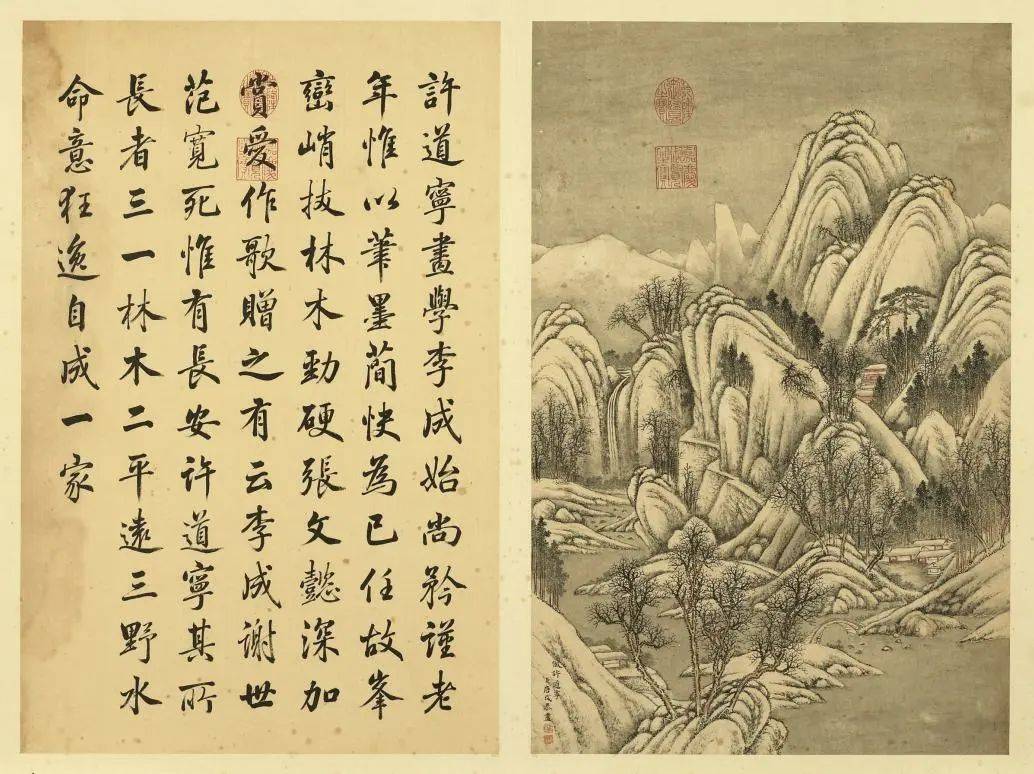 許道寧畫學李成始尚矜謹老
年惟以筆墨蕳快為已任故峯
巒峭拔林木勁硬張文懿深加
賞愛作歌贈之有云李成謝世
范寬死惟有長安許道寧其所
長者三一林木二平遠三野水
命意狂逸自成一家
倣許道寧